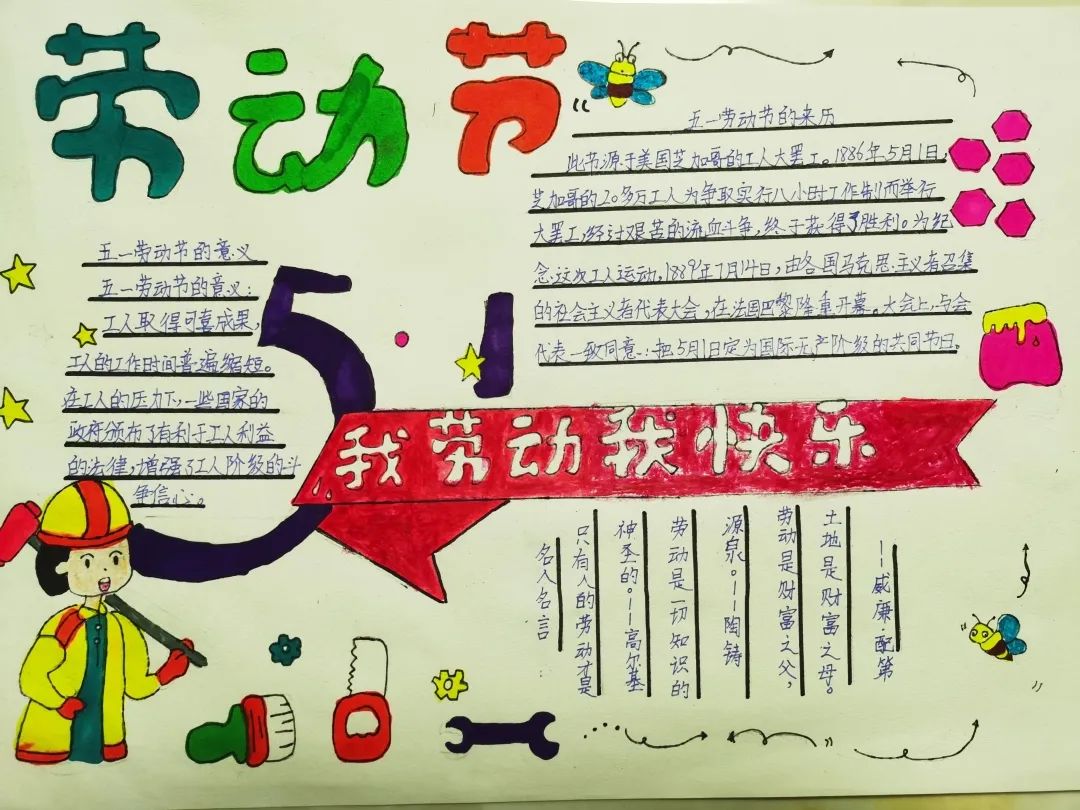 劳动节
五一劳动节的来历
此节源于美国芝加哥的工人大罢工。1886年5月1日,
芝加哥的20多万工人为争取实行八小时工作制而举行
大罢工,经过艰苦的流血斗争,终于获得了胜利。为纪
念这次工人运动,1889年7月14日,由各国马克思主义者召集
的社会主义者代表大会,在法国巴黎隆重开幕。大会上,与会
代表一致同意:把5月1日定为国际无产阶级的共同节日。
五一劳动节的意义
五一劳动节的意义:
工人取得可喜成果,
工人的工作时间普遍缩短。
在工人的压力下,一些国家的
政府颁布了有利于工人利益
的法律,增强了工人阶级的斗
争信心。
51
我劳动我快乐
名人名言
只有人的劳动才是
神圣的。——高尔基
劳动是一切知识的
源泉。——陶铸
劳动是财富之父,
土地是财富之母。
——威廉·配第